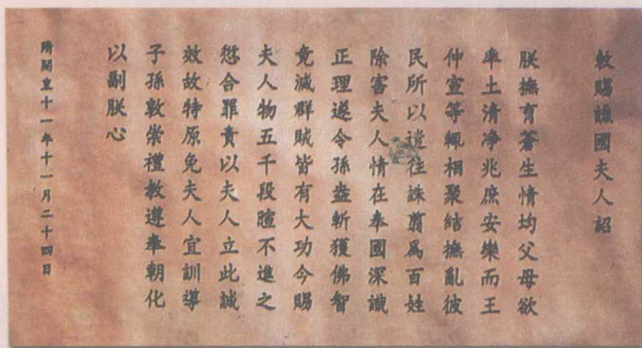 敕賜譙國夫人詔
朕撫育蒼生情均父母欲
率土清净兆庶安樂而王
仲宣等輒相聚結擾亂彼
民所以遣往誅翦爲百姓
除害夫人情在奉國深識
正理遂令孫盎斬獲佛智
竟滅群賊皆有大功今賜
夫人物五千段暄不進之
愆合罪責以夫人立此誠
效故特原免夫人宜訓導
子孫敦崇禮教遵奉朝化
以副朕心
隋開皇十一年十一月二十四日